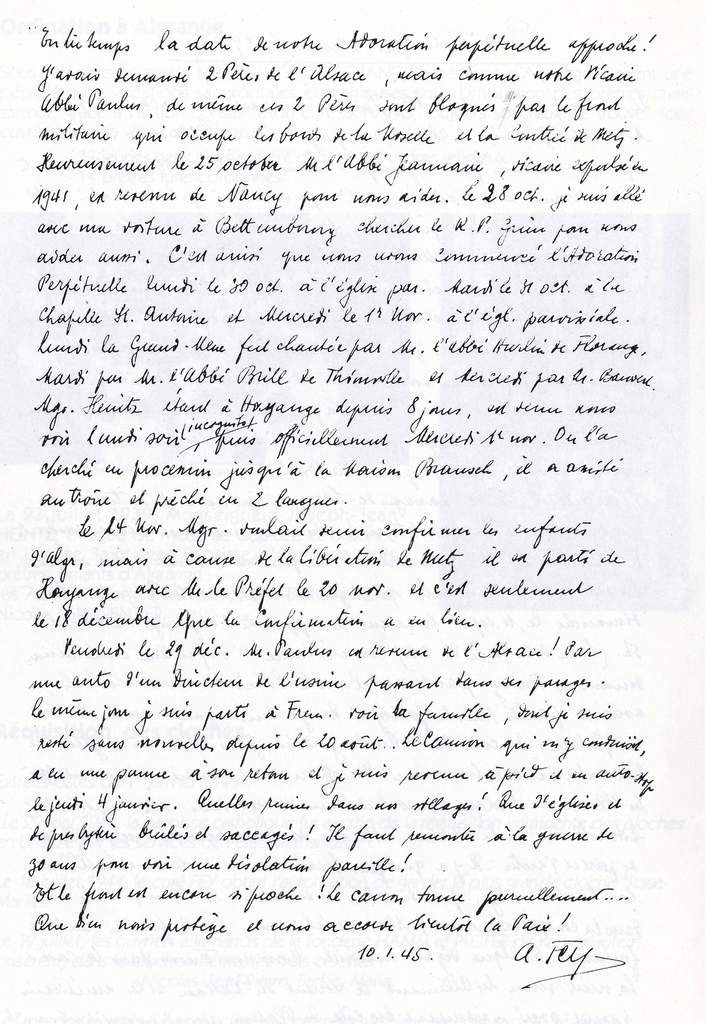 Entretemps la date de notre Adoration perpétuelle approche!
J'avais demandé 2 Pères de l'Alsace, mais comme notre Vicaire
Abbé Paulus, de même ces 2 Pères sont bloqués par le front
militaire qui occupe les bords de la Moselle et la Contrée de Metz.
Heureusement le 25 octobre Mr l'Abbé Jeanmaire, vicaire expulsé en
1941, est revenu de Nancy pour nous aider. Le 28 oct. je suis allé
avec ma voiture à Bettembourg chercher le R.P. Grün pour nous
aider aussi. C'est ainsi que nous avons commencé l'Adoration
Perpétuelle lundi le 30 oct. à l'église par. Mardi le 31 oct. à la
Chapelle St. Antoine et Mercredi le 1r Nov. à l'égl. paroissiale.
Lundi la Grand-Messe fut chantée par Mr. l'abbé de Florange,
Mardi par Mr. l'Abbé Brill de Thionville et Mercredi par Mr.
Mgr. Heintz étant à Hayange depuis 8 jours, est venu nous
voir lundi soir incognitot puis officiellement Mercredi 1r nov. On l'a
cherché en procession jusqu'à la Maison Brausch, il a assisté
au trône et prêché en 2 langues.
Le 24 Nov. Mgr. voulait venir confirmer les enfants
d'Algr, mais à cause de la libération de Metz il est parti de
Hayange avec Mr le Préfet le 20 nov. et c'est seulement
le 18 décembre que la Confirmation a eu lieu.
Vendredi le 29 déc. Mr. Paulus est revenu de l'Alsace! Par
une auto d'un Directeur de l'usine passant dans ses parages.
Le même jour je suis parti à Frem. voir la famille, dont je suis
resté sans nouvelles depuis le 20 août.. Le Camion qui m'y conduisit,
a eu une panne à son retour et je suis revenu à pied et en auto-stop
le jeudi 4 janvier. Quelles ruines dans nos villages! Que d'églises et
de presbytère brûlés et saccagés! Il faut remonter à la guerre de
30 ans pour voir une désolation pareille!
Et le front est encore si proche! Le canon tonne journellement....
Que Dieu nous protège et nous accorde bientôt la Paix!
10.1.45. A. Fey